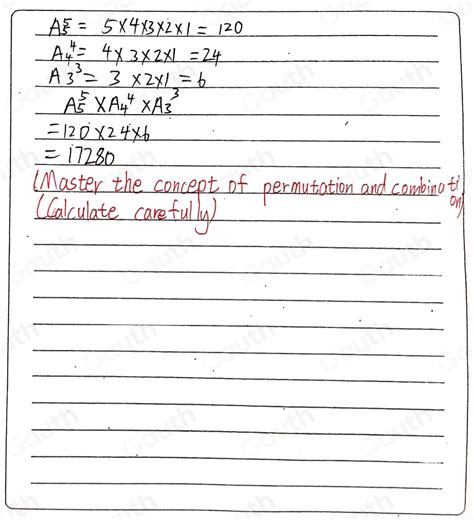 A₅⁵ = 5×4×3×2×1 = 120
A₄⁴ = 4×3×2×1 = 24
A₃³ = 3×2×1 = 6
A₅⁵ × A₄⁴ × A₃³
= 120×24×6
= 17280
(Master the concept of permutation and combination)
(Calculate carefully)